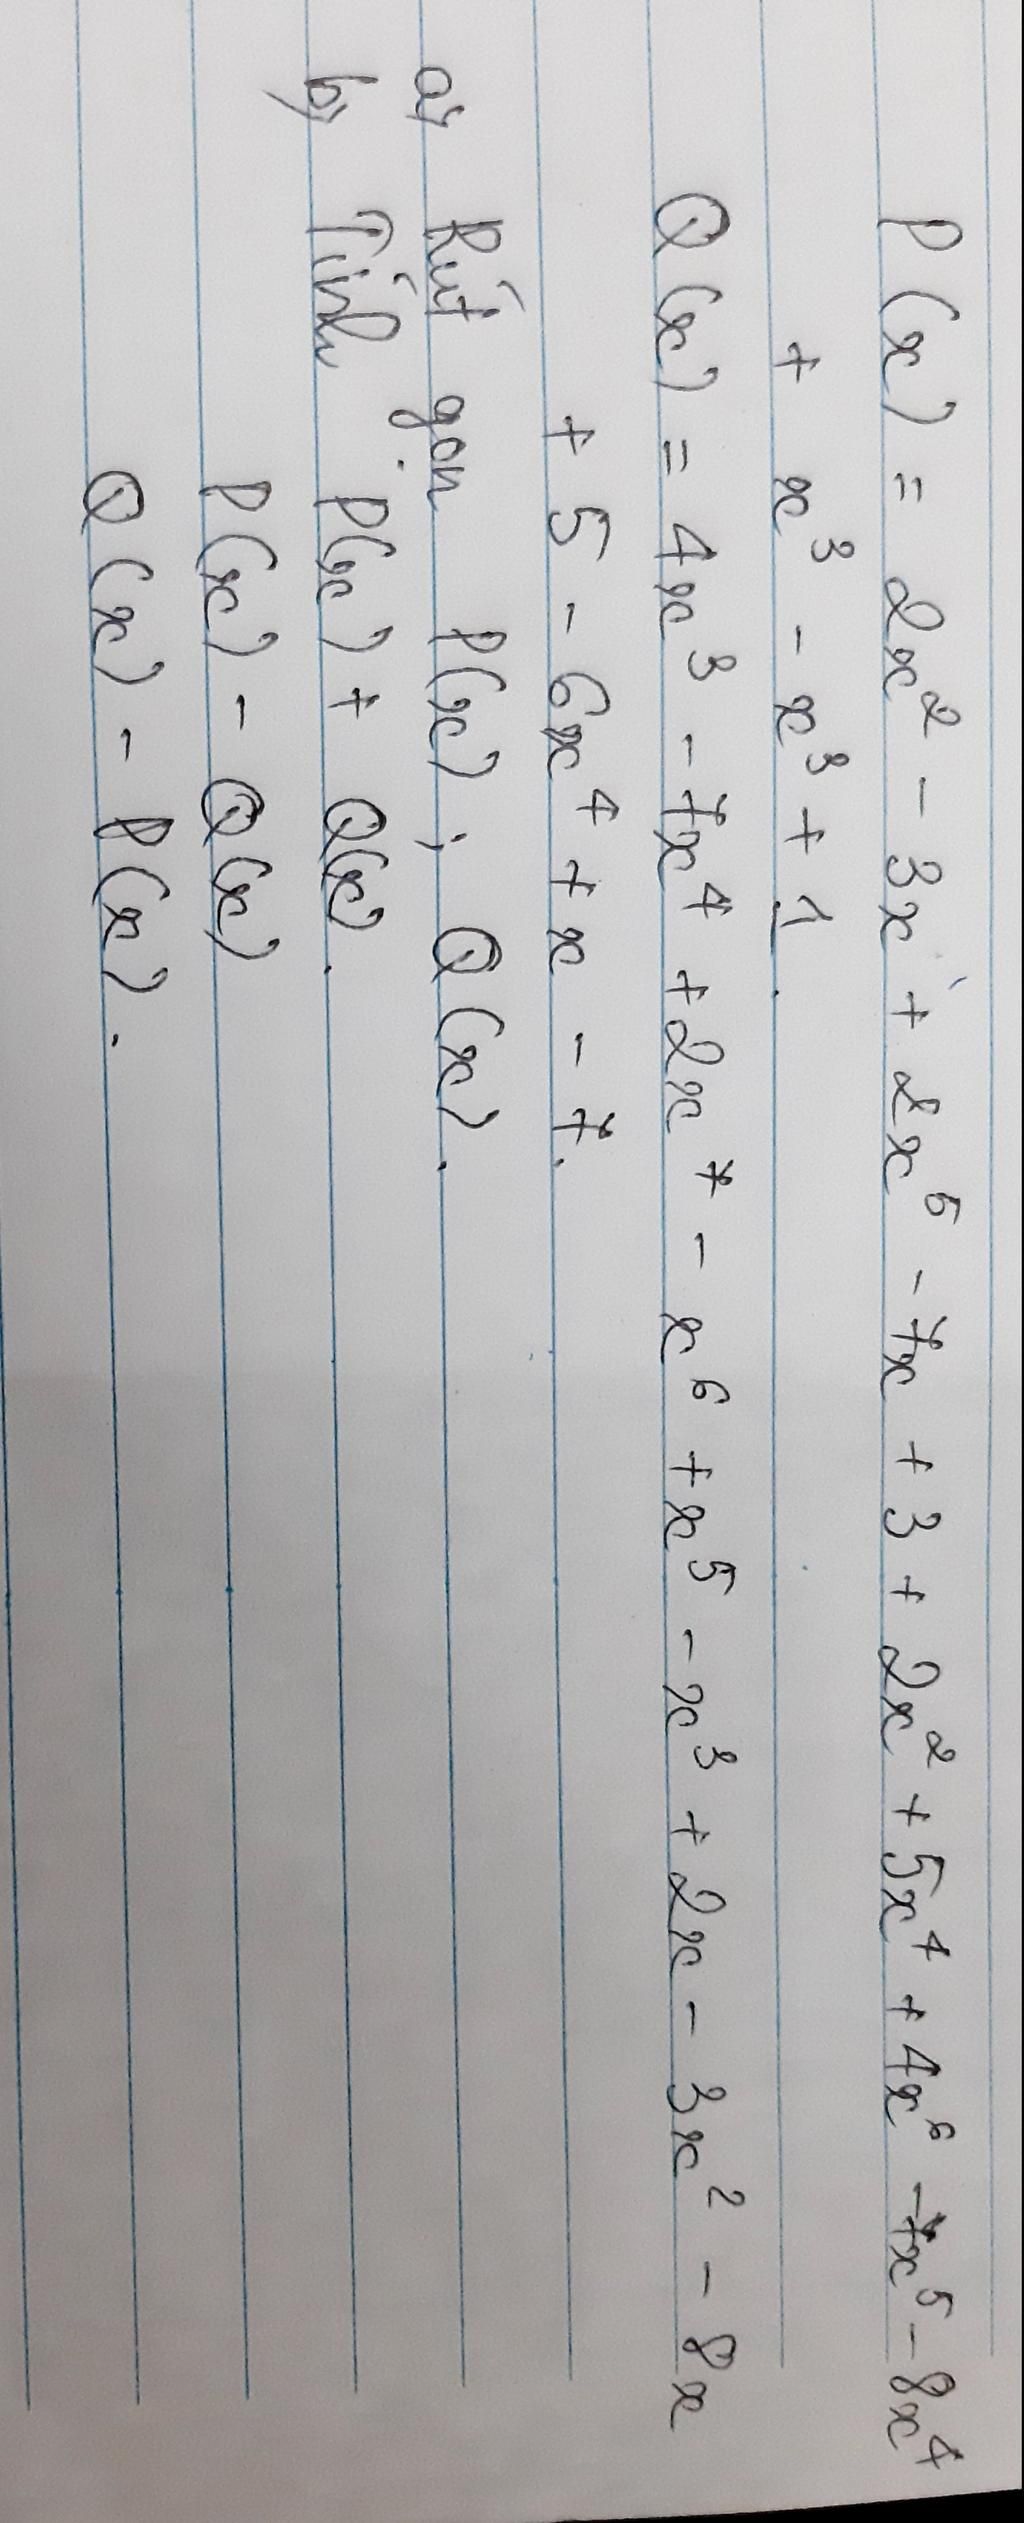 P(x) = 2x² - 3x + 2x⁵ - 7x + 3 + 2x² + 5x⁴ + 4x⁶ - 7x⁵ - 8x⁴
+ x³ - x³ + 1.
Q(x) = 4x³ - 7x⁴ + 2x⁷ - x⁶ + x⁵ - x³ + 2x - 3x² - 8x
+ 5 - 6x⁴ + x - 7.
a, Rút gọn P(x) ; Q(x).
b, Tính P(x) + Q(x).
P(x) - Q(x)
Q(x) - P(x).